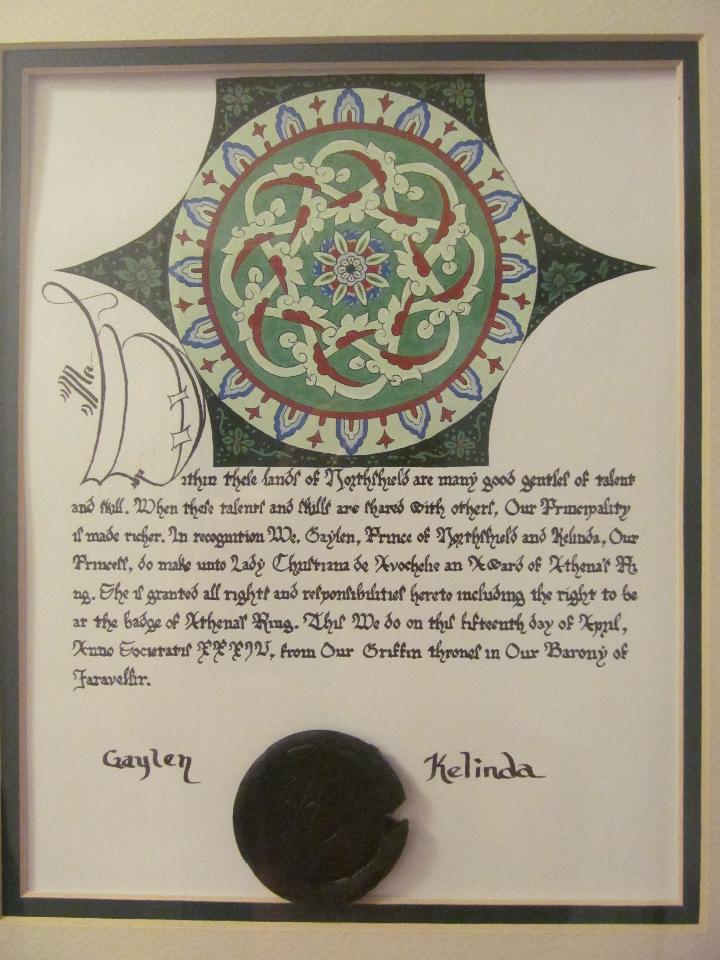 Within these lands of Northshield are many good gentles of talent
and skill. When these talents and skills are shared with others, Our Principality
is made richer. In recognition We, Gaylen, Prince of Northshield and Kelinda, Our
Princess, do make unto Lady Christiana de Avochelie an Award of Athena's Ri
ng. She is granted all rights and responsibilities hereto including the right to be
ar the badge of Athena's Ring. This We do on this fifteenth day of April,
Anno Societatis XXXIV, from Our Griffin thrones in Our Barony of
Jaravellir.
Gaylen
Kelinda